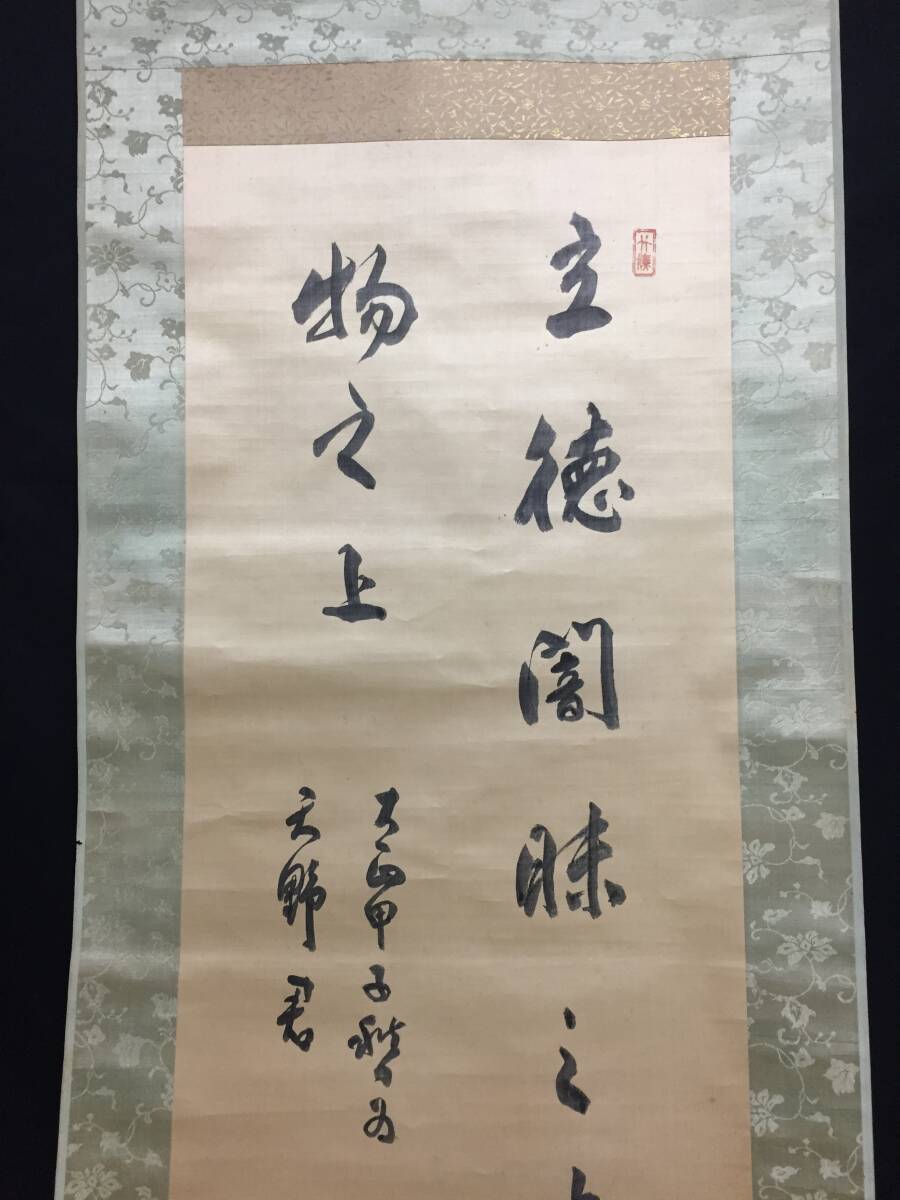 立德闇昧之
物之上
大正甲子秋日為
天野君